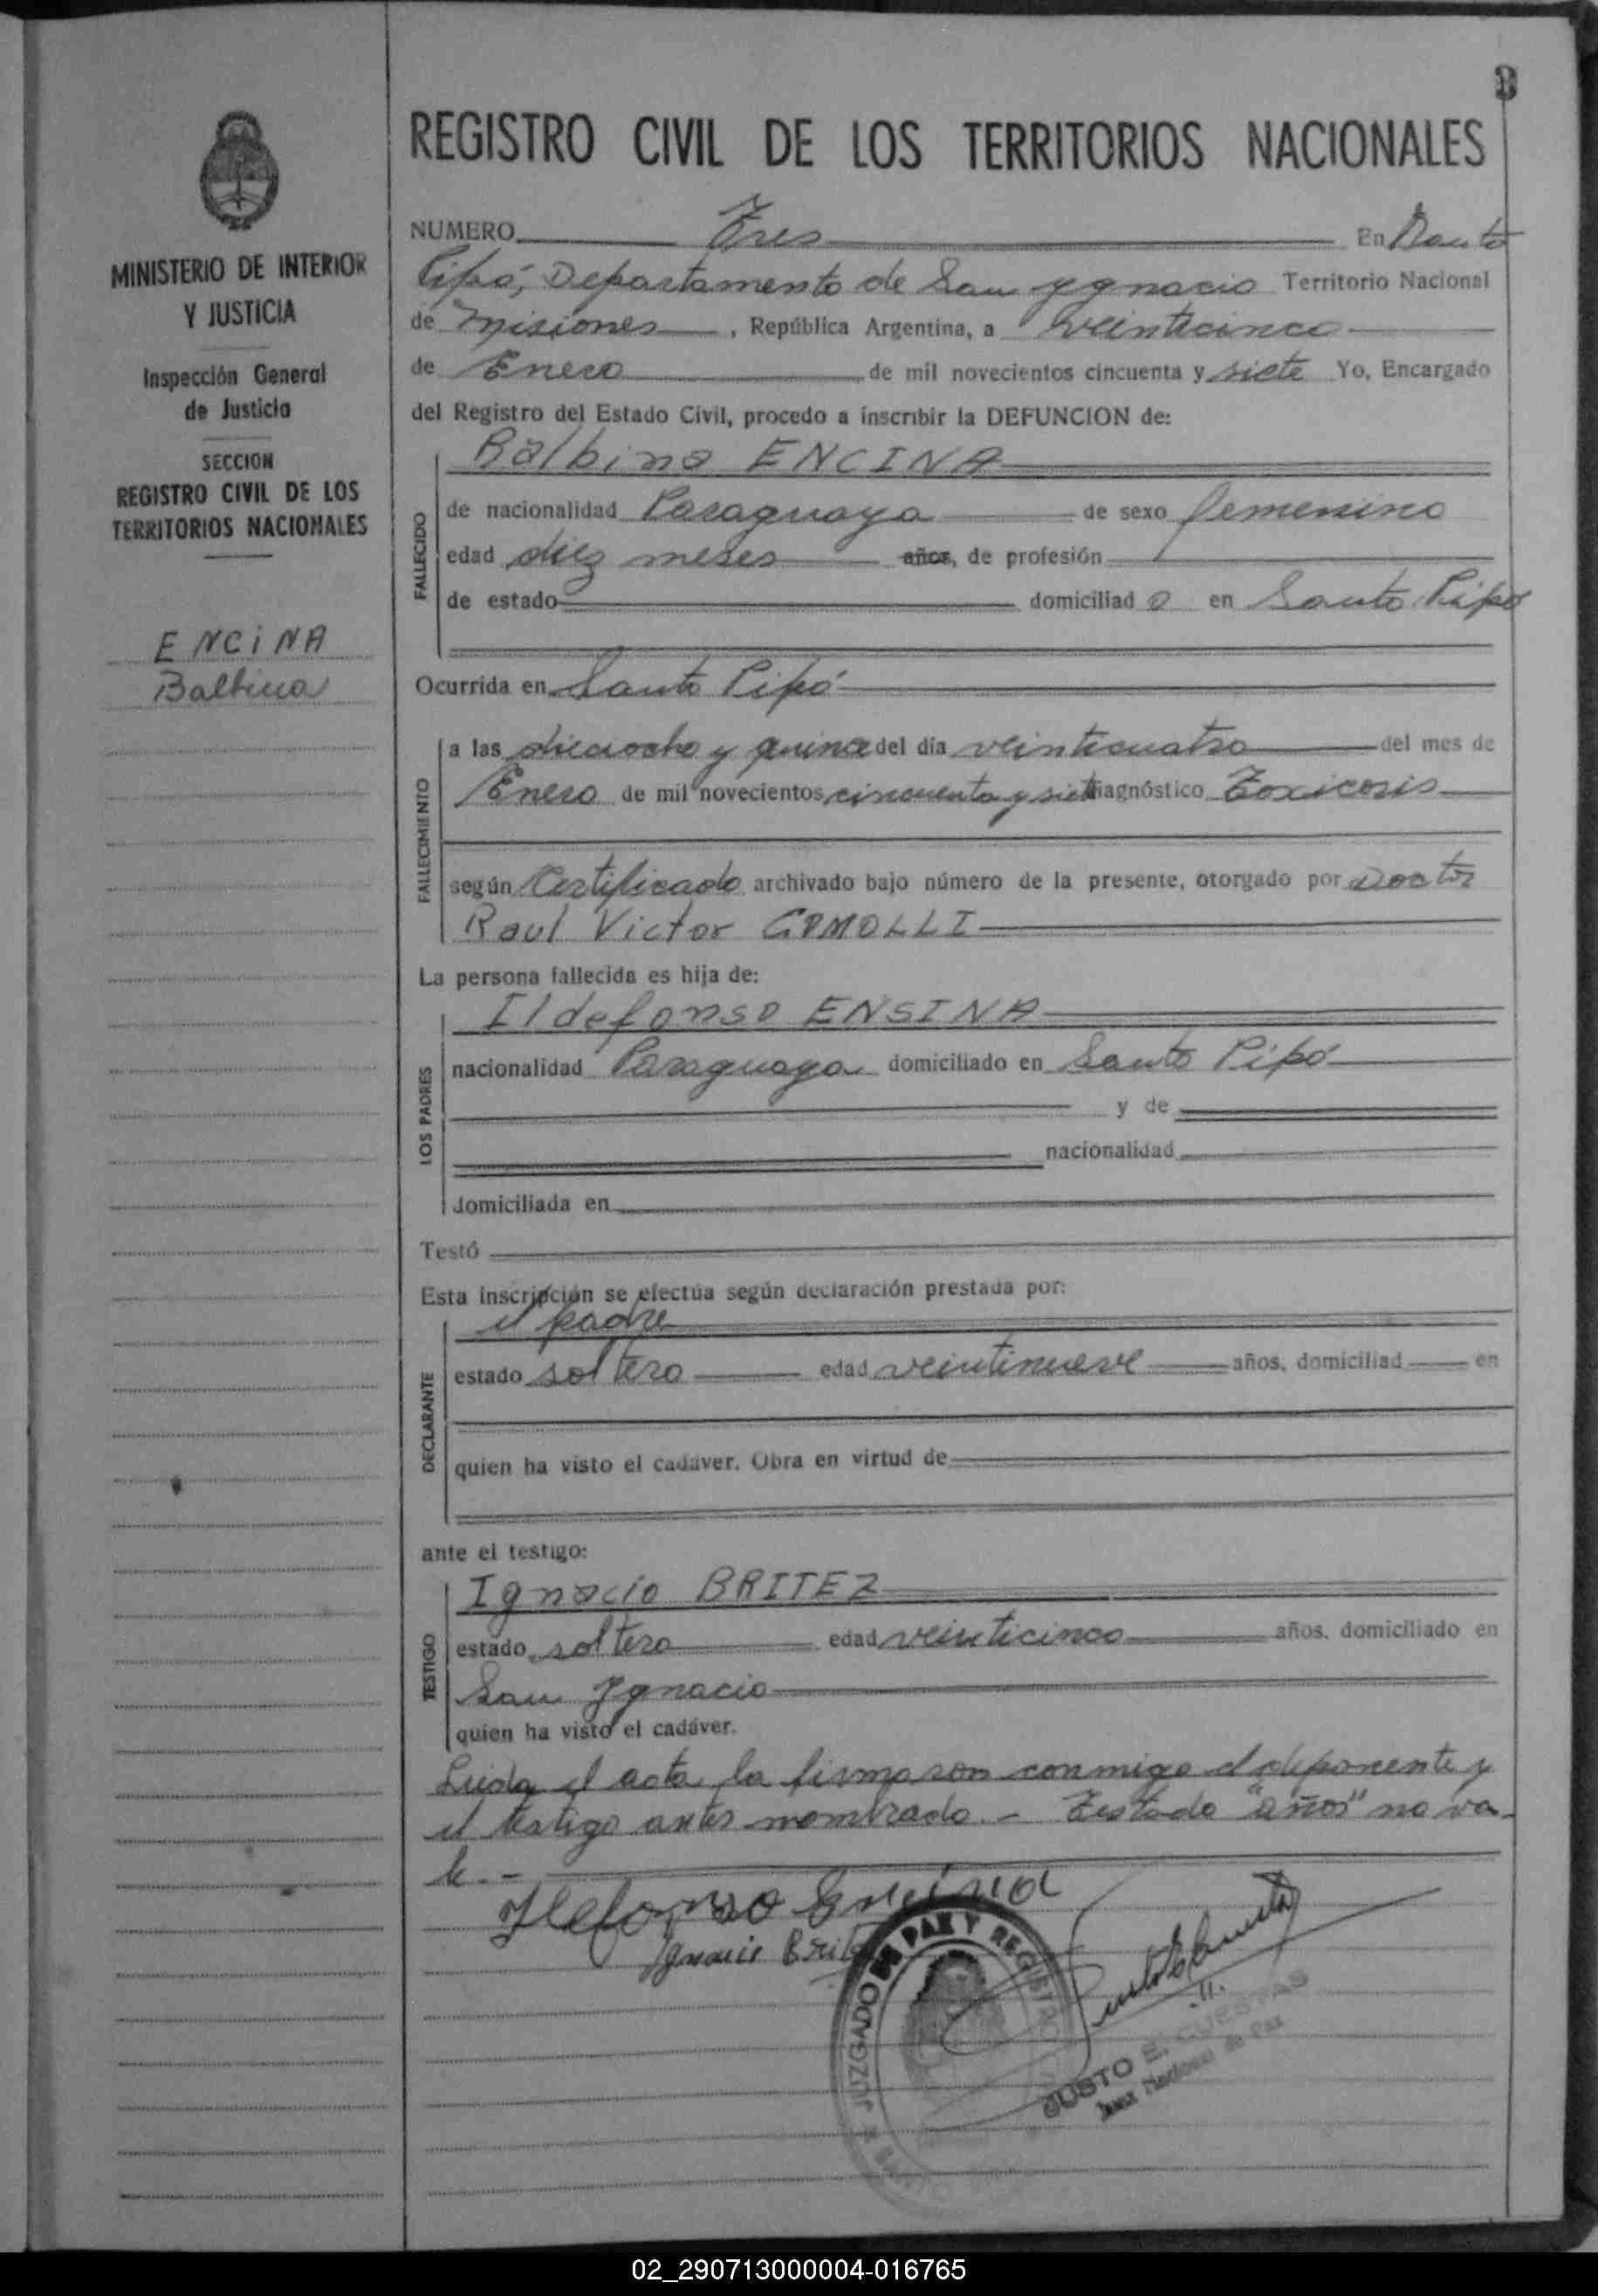 3
REGISTRO CIVIL DE LOS TERRITORIOS NACIONALES
MINISTERIO DE INTERIOR
Y JUSTICIA
Inspección General
de Justicia
SECCION
REGISTRO CIVIL DE LOS
TERRITORIOS NACIONALES
ENCINA
Balbina
NUMERO Tres En Santo
Pipó, Departamento de San Ygnacio Territorio Nacional
de Misiones, República Argentina, a veinticinco
de Enero de mil novecientos cincuenta y siete Yo, Encargado
del Registro del Estado Civil, procedo a inscribir la DEFUNCION de:
FALLECIDO
Balbina ENCINA
de nacionalidad Paraguaya de sexo femenino
edad diez meses años, de profesión
de estado domiciliad o en Santo Pipó
Ocurrida en Santo Pipó
FALLECIMIENTO
a las dieciocho y quince del día veinticuatro del mes de
Enero de mil novecientos cincuenta y siete diagnóstico Toxicosis
según Certificado archivado bajo número de la presente, otorgado por Doctor
Raul Victor GOMOLLI
La persona fallecida es hija de:
LOS PADRES
Ildefonso ENSINA
nacionalidad Paraguaya domiciliado en Santo Pipó
y de
nacionalidad
domiciliada en
Testó
Esta inscripción se efectúa según declaración prestada por:
DECLARANTE
el padre
estado soltero edad veintinueve años, domiciliad en
quien ha visto el cadáver. Obra en virtud de
ante el testigo:
TESTIGO
Ignacio BRITEZ
estado soltero edad veinticinco años, domiciliado en
San Ygnacio
quien ha visto el cadáver.
Leida el acta, la firmaron conmigo el deponente y
el testigo antes nombrado. - Testado "años" no va-
le. -
Ildefonso Encina
Ignacio Britez
JUZGADO DE PAZ Y REGISTRO
JUSTO E. CUESTAS
Juez Nacional de Paz
02_290713000004-016765